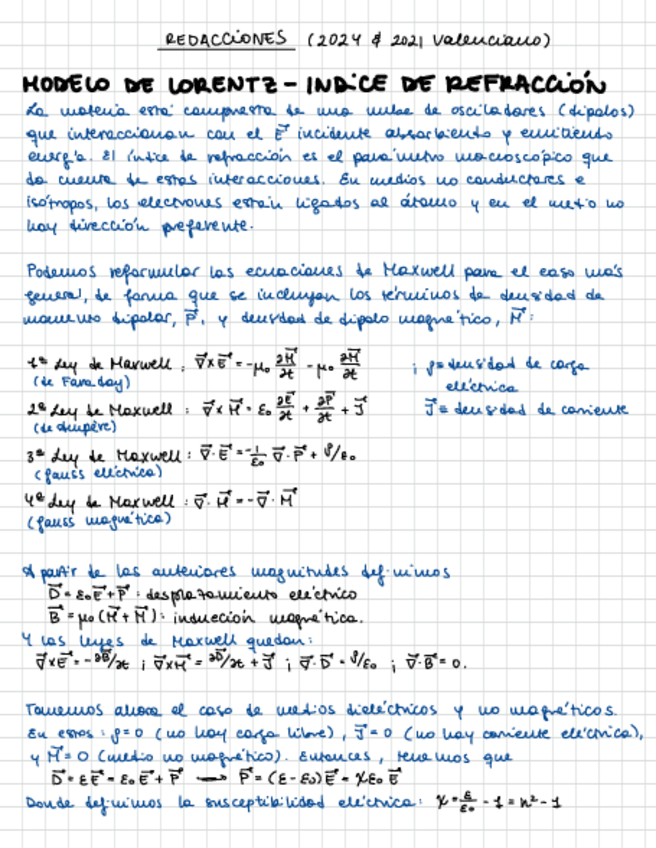 REDACCIONES (2024 & 2021 Valenciano)
MODELO DE LORENTZ - INDICE DE REFRACCIÓN
La materia está compuesta de una nube de osciladores (dipolos)
que interaccionan con el E⃗ incidente absorbiendo y emitiendo
energía. El índice de refracción es el parámetro macroscópico que
da cuenta de estas interacciones. En medios no conductores e
isótropos, los electrones están ligados al átomo y en el medio no
hay dirección preferente.
Podemos reformular las ecuaciones de Maxwell para el caso más
general, de forma que se incluyan los términos de densidad de
momento dipolar, P⃗, y densidad de dipolo magnético, M⃗:
1ª Ley de Maxwell : ∇⃗×E⃗ = -μ₀ ∂H⃗/∂t - μ₀ ∂M⃗/∂t ; ρ = densidad de carga
(de Faraday) eléctrica
2ª Ley de Maxwell : ∇⃗×H⃗ = ε₀ ∂E⃗/∂t + ∂P⃗/∂t + J⃗ J⃗ = densidad de corriente
(de Ampère)
3ª Ley de Maxwell : ∇⃗·E⃗ = -1/ε₀ ∇⃗·P⃗ + ρ/ε₀
(gauss eléctrica)
4ª Ley de Maxwell : ∇⃗·H⃗ = -∇⃗·M⃗
(gauss magnética)
A partir de las anteriores magnitudes definimos
D⃗ = ε₀E⃗ + P⃗ : desplazamiento eléctrico
B⃗ = μ₀(H⃗ + M⃗) : inducción magnética.
Y las leyes de Maxwell quedan:
∇⃗×E⃗ = -∂B⃗/∂t ; ∇⃗×H⃗ = ∂D⃗/∂t + J⃗ ; ∇⃗·D⃗ = ρ/ε₀ ; ∇⃗·B⃗ = 0.
Tomemos ahora el caso de medios dieléctricos y no magnéticos.
En estos : ρ=0 (no hay carga libre), J⃗=0 (no hay corriente eléctrica),
y M⃗=0 (medio no magnético). Entonces, tenemos que
D⃗ = εE⃗ = ε₀E⃗ + P⃗ ⟶ P⃗ = (ε-ε₀)E⃗ = χε₀E⃗
Donde definimos la susceptibilidad eléctrica: χ = ε/ε₀ - 1 = n² - 1